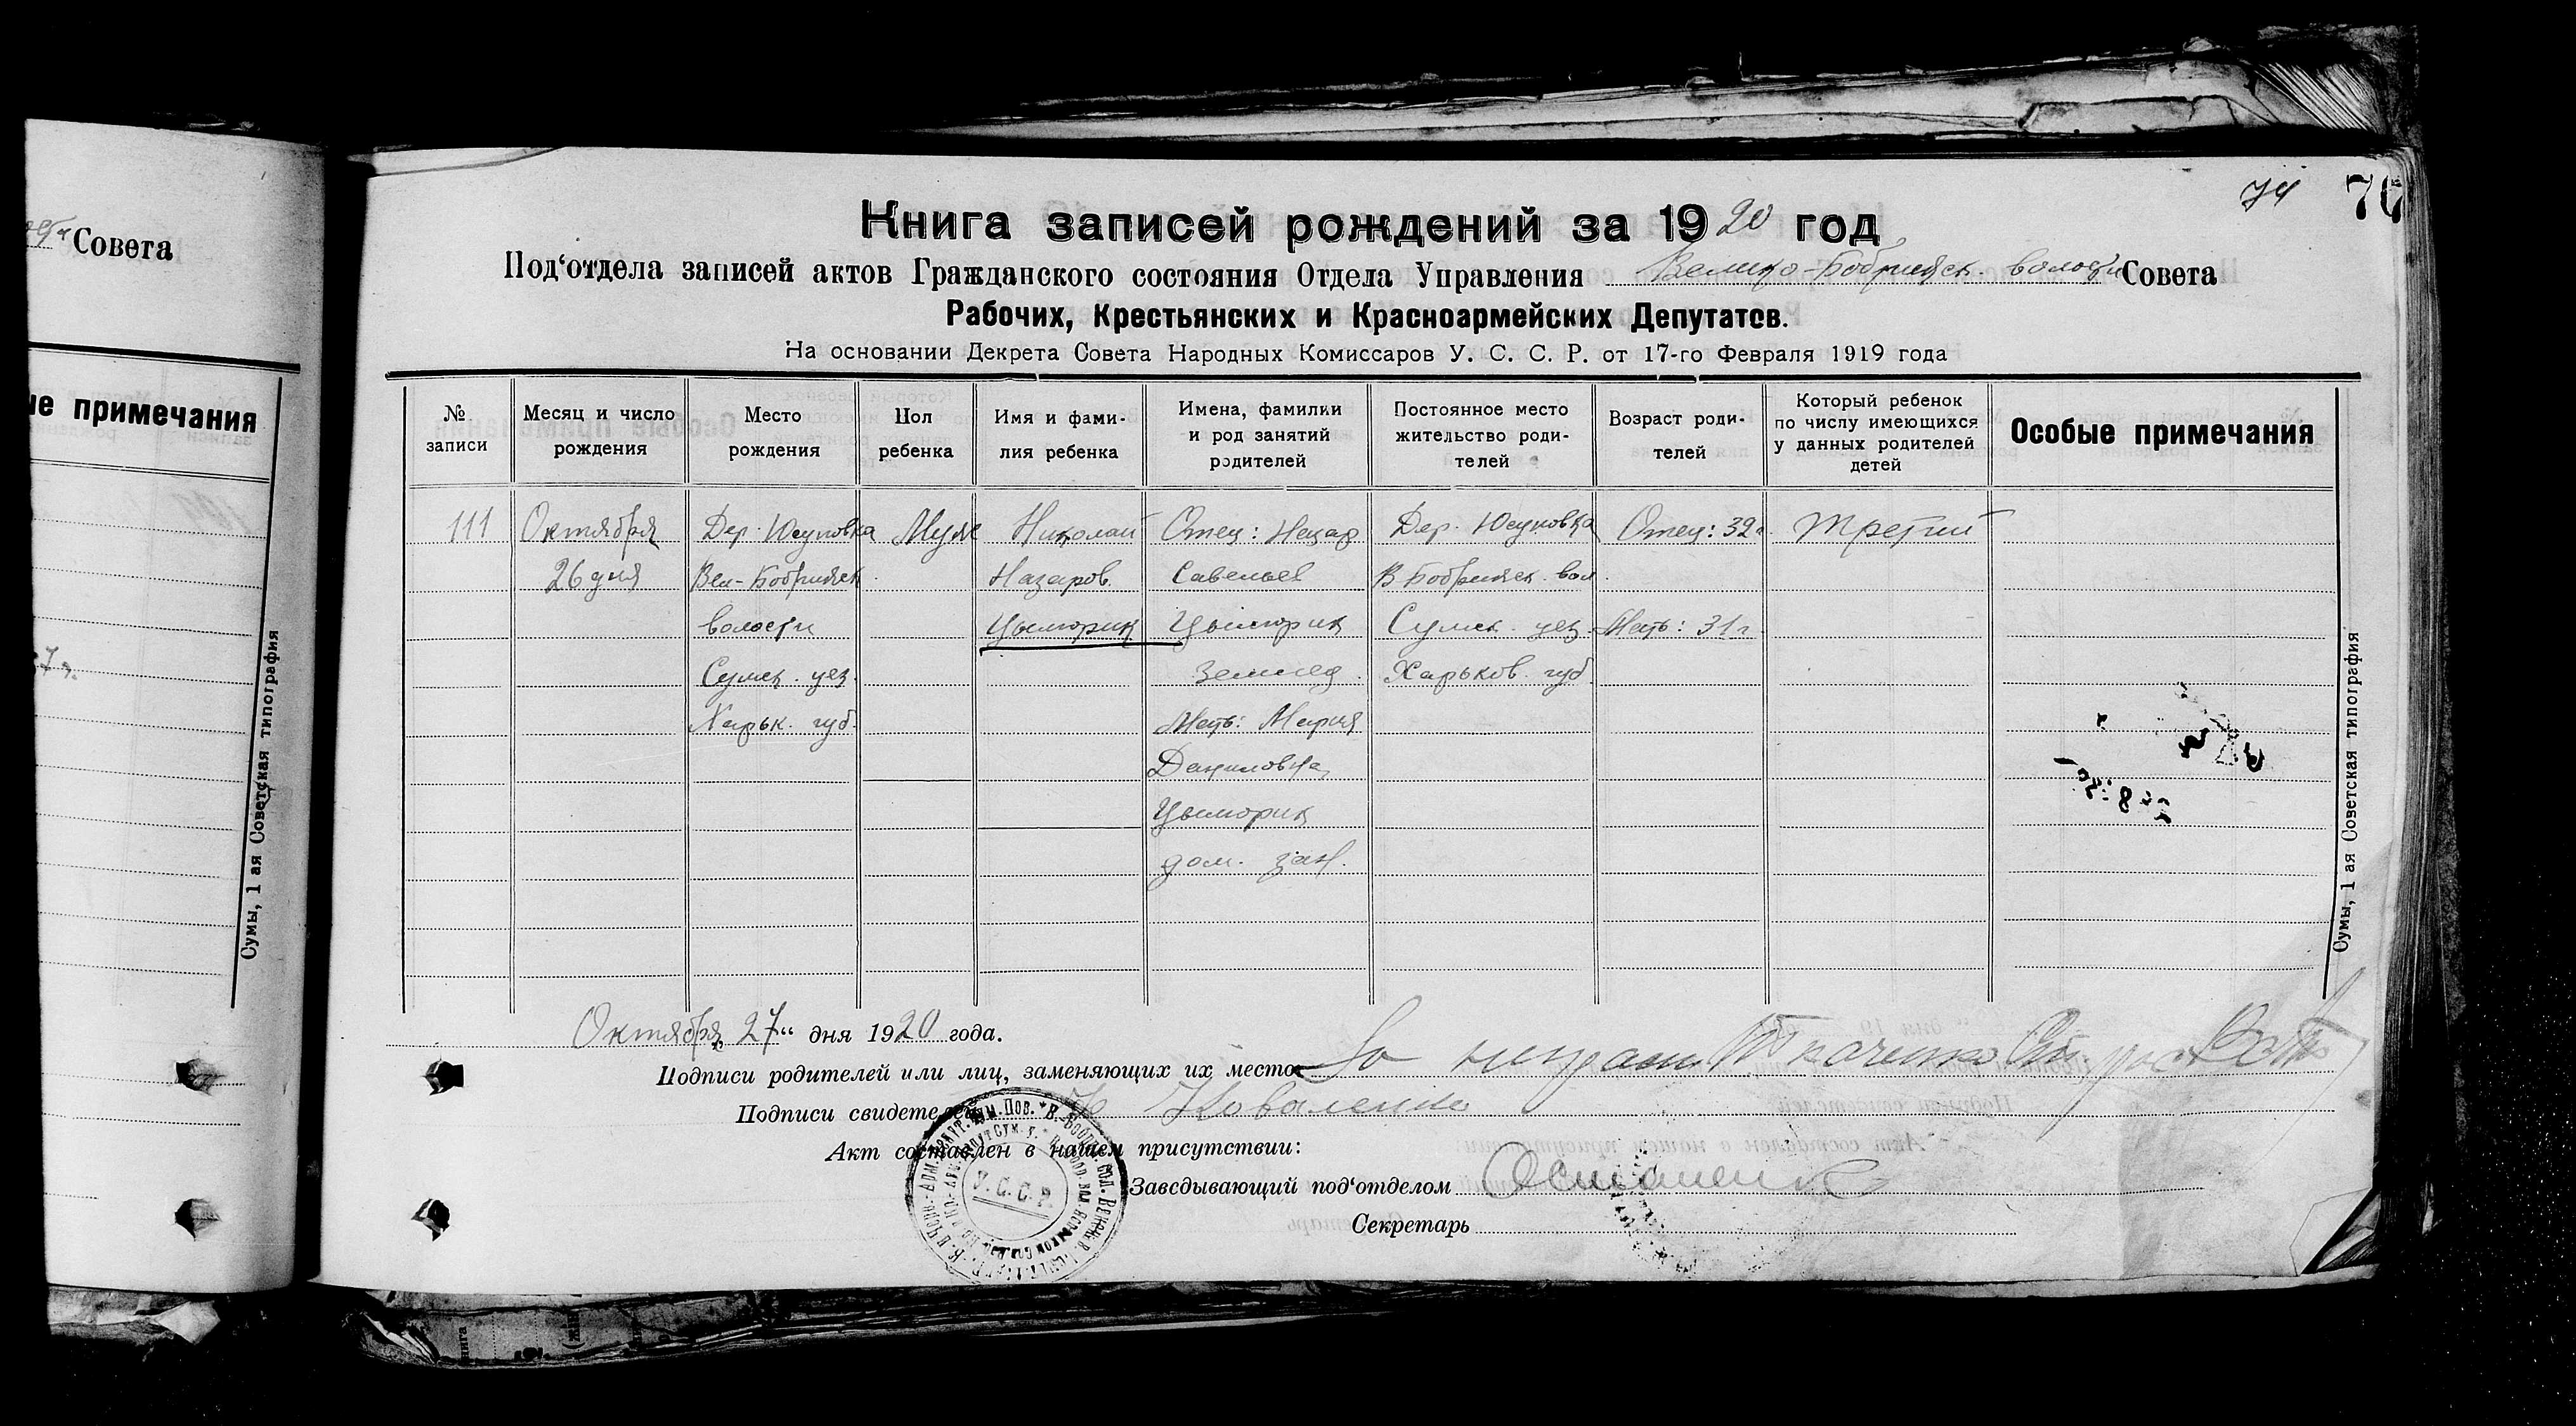 Совета
ые примечания
7 г.
Сумы, 1 ая Советская типография
74 76
Книга записей рождений за 1920 год
Под‘отдела записей актов Гражданского состояния Отдела Управления Велико-Бобрицкск. волости Совета
Рабочих, Крестьянских и Красноармейских Депутатов.
На основании Декрета Совета Народных Комиссаров У. С. С. Р. от 17-го Февраля 1919 года
№ записи
Месяц и число рождения
Место рождения
Пол ребенка
Имя и фами-
лия ребенка
Имена, фамилии
и род занятий
родителей
Постоянное место
жительство роди-
телей
Возраст роди-
телей
Который ребенок
по числу имеющихся
у данных родителей
детей
Особые примечания
111
Октября
26 дня
Дер. Юсуповка
Вел-Бобрицск.
волости
Сумск. уез.
Харьк. губ.
Муж
Николай
Назаров.
Цыморик
Отец: Назар
Савельев
Цыморик
Землед.
Мать: Мария
Даниловна
Цыморик
дом. зан.
Дер. Юсуповка
В Бобрицск. вол.
Сумск. уез.
Харьков. губ.
Отец: 32 г.
Мать: 31 г.
третий
Сумы, 1 ая Советская типография
Октября 27“ дня 1920 года.
Подписи родителей или лиц, заменяющих их место За неграм Ткаченко
Подписи свидетелей Коваленко
Акт составлен в нашем присутствии:
Заведывающий под‘отделом
Секретарь
У.С.С.Р.